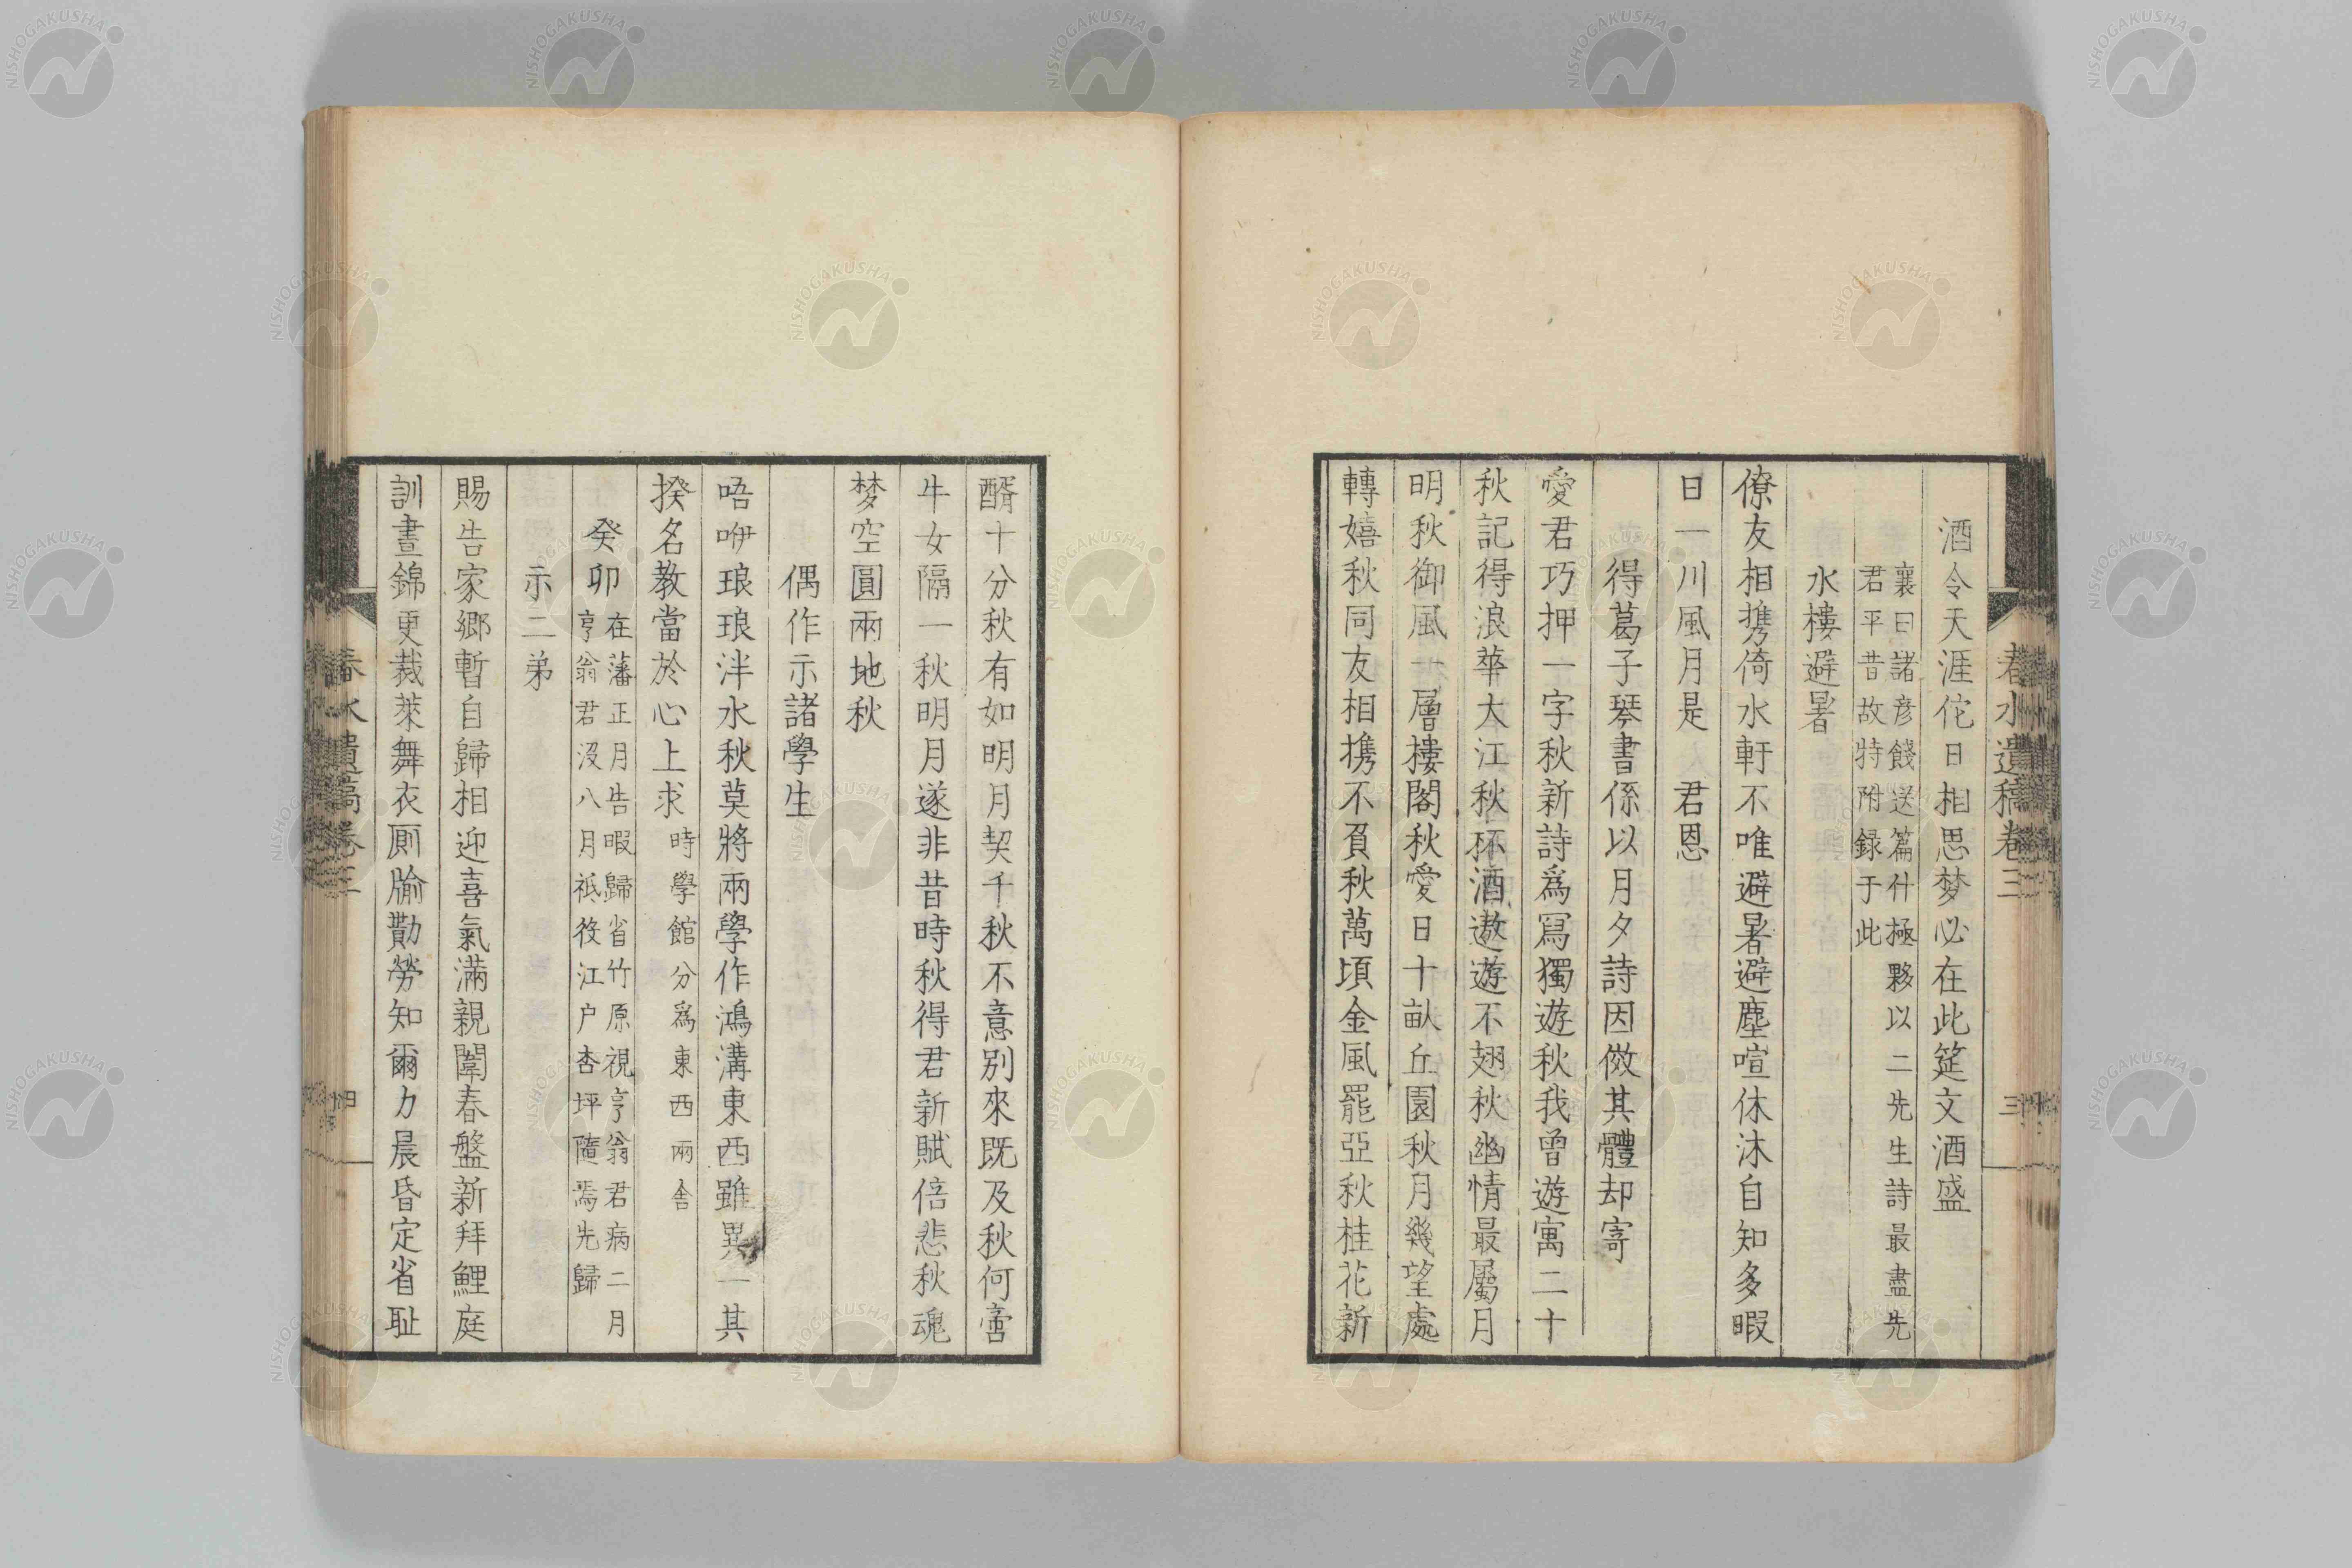 春水遺稿卷三
三
酒令天涯佗日相思梦必在此筵文酒盛
襄曰諸彦餞送篇什極夥以二先生詩最盡先
君平昔故特附録于此
水樓避暑
僚友相携倚水軒不唯避暑避塵喧休沐自知多暇
日一川風月是 君恩
得葛子琴書係以月夕詩因傚其體却寄
愛君巧押一字秋新詩爲冩獨遊秋我曾遊寓二十
秋記得浪華大江秋杯酒遨遊不翅秋幽情最屬月
明秋御風一層樓閣秋愛日十畝丘園秋月幾望處
轉嬉秋同友相携不負秋萬頃金風罷亞秋桂花新
醑十分秋有如明月契千秋不意別來既及秋何啻
牛女隔一秋明月遂非昔時秋得君新賦倍悲秋魂
梦空圓兩地秋
偶作示諸學生
唔咿琅琅泮水秋莫將兩學作鴻溝東西雖異一其
揆名教當於心上求 時學館分爲東西兩舍
癸卯 在藩正月告暇歸省竹原視亨翁君病二月
亨翁君没八月祗役江户杏坪隨焉先歸
示二弟
賜告家郷暫自歸相迎喜氣滿親闈春盤新拜鯉庭
訓晝錦更裁萊舞衣厠牏勤勞知爾力晨昏定省耻
春水遺稿卷三
四
NISHOGAKUSHA